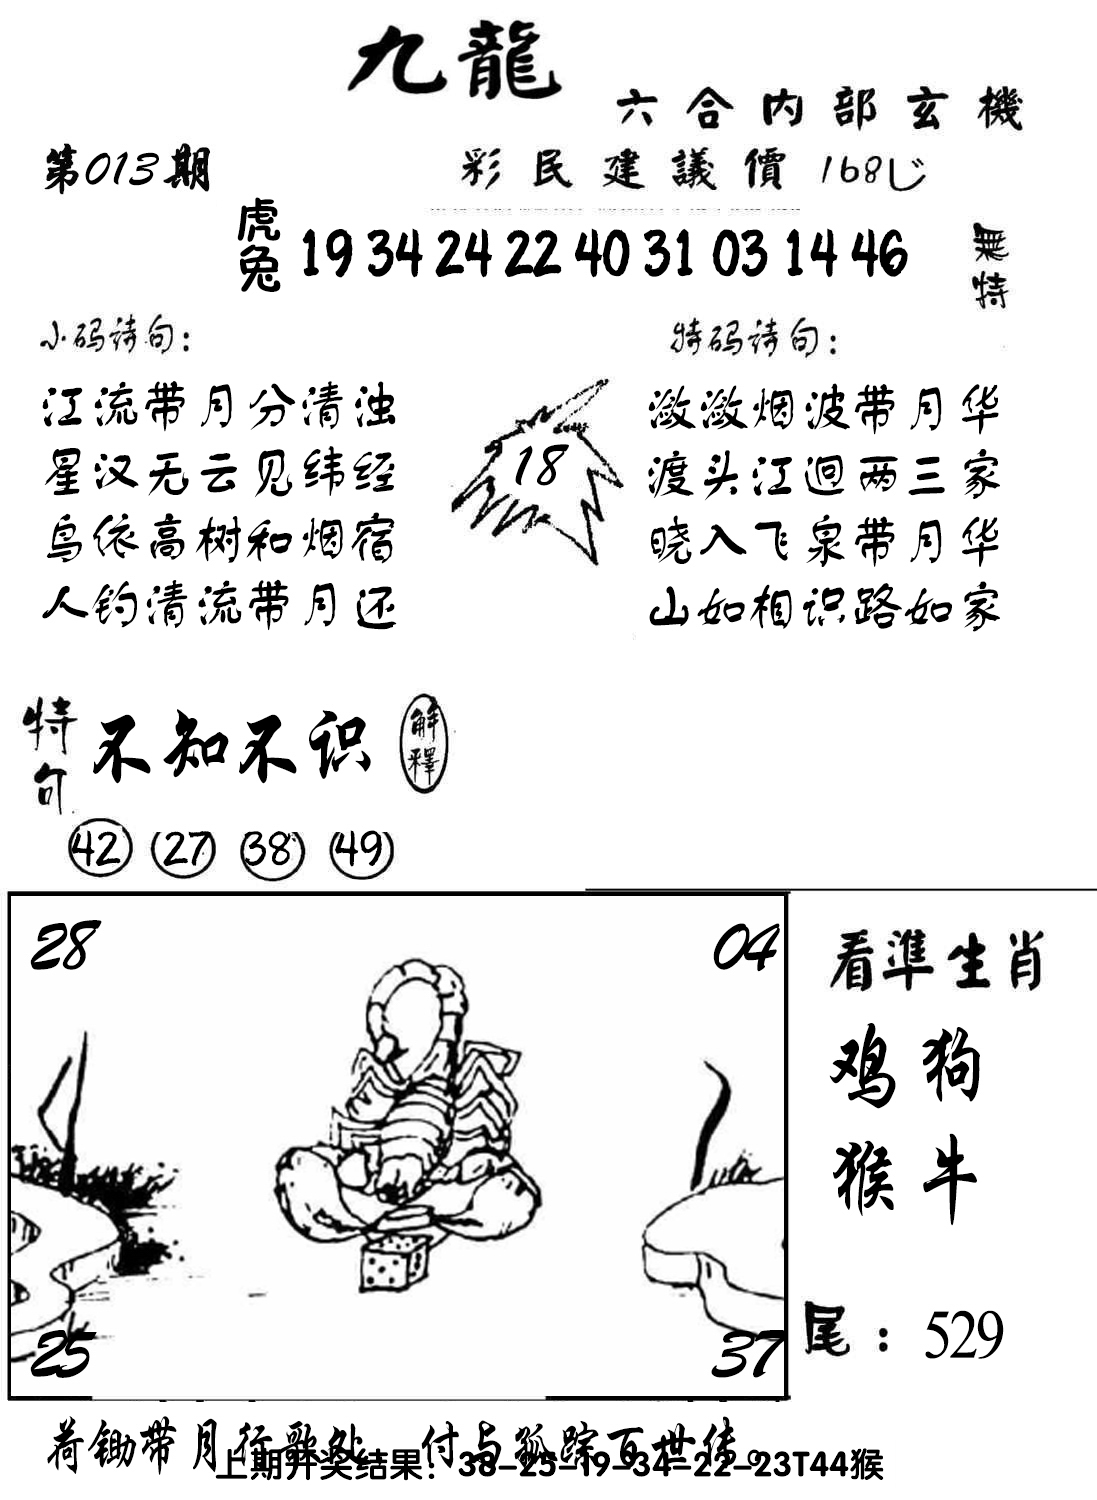 九龍
六合内部玄機
第013期
彩民建議價 168
虎兔 19 34 24 22 40 31 03 14 46 無特
小码诗句：
特码诗句：
江流带月分清浊
星汉无云见纬经
鸟依高树和烟宿
人钓清流带月还
18
潋潋烟波带月华
渡头江迥两三家
晓入飞泉带月华
山如相识路如家
特句 不知不识 解釋
42 27 38 49
28 04
25 37
看準生肖
鸡狗
猴牛
尾：529
荷锄带月行歌处 付与孤踪百世传。
上期开奖结果：38-25-19-34-22-23T44猴